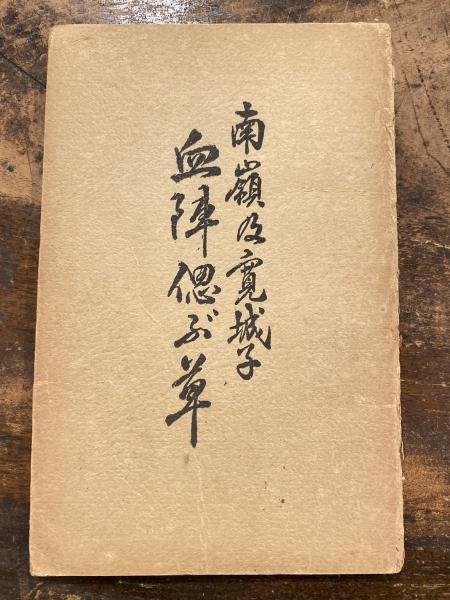 南嶺及寛城子
血陣偲ぶ草